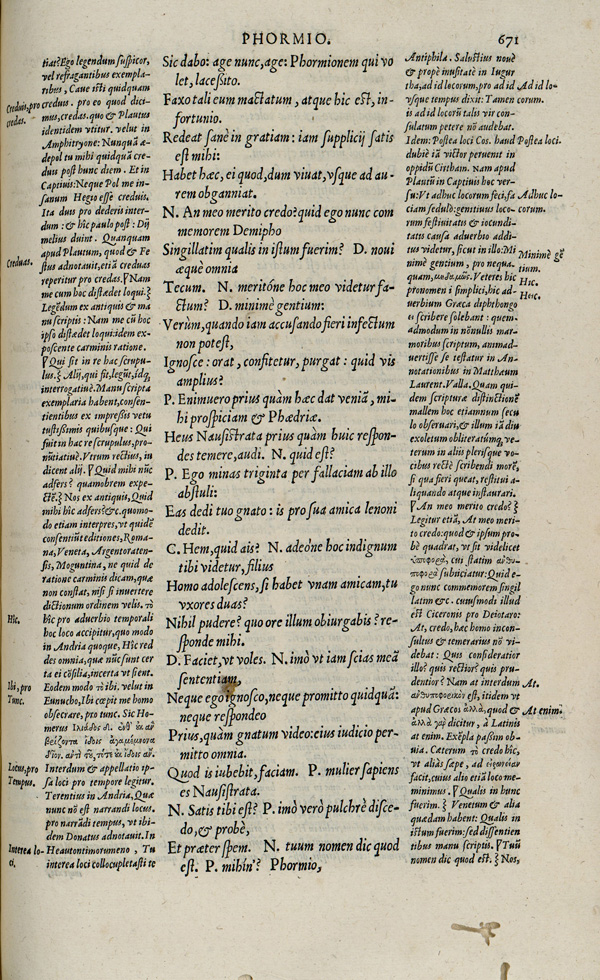 PHORMIO.
671
tiat? Ego legendum suspicor,
vel refragantibus exempla-
ribus, Caue isti quidquam
creduis. pro eo quod dici-
mus, credas. quo & Plautus
identidem vtitur. velut in
Amphitryone: Nunquã æ-
depol tu mihi quidquã cre-
duis post hunc diem. Et in
Captiuis: Neque Pol me in-
sanum Hegio esse creduis.
Ita duis pro dederis inter-
dum: & hîc paulo pòst: Dij
melius duint. Quanquam
apud Plautum, quod & Fe
stus adnotauit, etiã creduas
reperitur pro credas. ꝑ Nam
me cum hoc distædet loqui. ξ
Legẽdum ex antiquis & ma
nu scriptis: Nam me cũ hoc
ipso distædet loqui: idem ex-
poscente carminis ratione.
Qui fit in re hac scrupu-
lus? ξ Alij, qui fit, legũt, idq́,
interrogatiuè. Manuscripta
exemplaria habent, consen-
tientibus ex impressis vetu
tustissimis quibusque: Qui
fuit in hac re scrupulus, pro-
nũtiatiuè. Vtrum rectius, in
dicent alij. Quid mihi nũc
adfers? quamobrem expe-
ctẽ. ξ Nos ex antiquis, Quid
mihi hîc adfers? &c. quomo-
do etiam interpres, vt quidẽ
consentiũt editiones, Roma-
na, Veneta, Argentoraten-
sis, Moguntina, ne quid de
ratione carminis dicam, quæ
non constat, nisi si inuertere
dictionum ordinem velis. τὸ
hîc pro aduerbio temporali
hoc loco accipitur, quo modo
in Andria quoque, Hîc red
des omnia, quæ nũc sunt cer
ta ei cõsilia, incerta vt sient.
Eodem modo τὸ ibi. velut in
Eunucho, Ibi cœpit me homo
obsecrare, pro tunc. Sic Ho-
merus
Interdum & appellatio ip-
sa loci pro tempore legitur.
Terentius in Andria, Quæ
nunc nõ est narrandi locus.
pro narrãdi tempus, vt ibi-
idem Donatus adnotauit. In
Heautontimorumeno, Tu
interea loci collocupletasti te
Creduis, pro
credas.
Creduas.
Hîc.
Ibi, pro
Tunc.
Locus, pro
Tempus.
Interea lo-
ci.
Sic dabo: age nunc, age: Phormionem qui vo
let, lacessito.
Faxo tali eum mactatum, atque hic est, in-
fortunio.
Redeat sanè in gratiam: iam supplicij satis
est mihi:
Habet hæc, ei quod, dum viuat, vsque ad au-
rem obganniat.
N. An meo merito credo? quid ego nunc com
memorem Demipho
Singillatim qualis in istum fuerim? D. noui
æquè omnia
Tecum. N. meritóne hoc meo videtur fa-
ctum? D. minimè gentium:
Verùm, quando iam accusando fieri infectum
non potest,
Ignosce: orat, confitetur, purgat: quid vis
amplius?
P. Enimuero prius quàm hæc dat veniã, mi-
hi prospiciam & Phædriæ.
Heus Nausistrata prius quàm huic respon-
des temere, audi. N. quid est?
P. Ego minas triginta per fallaciam ab illo
abstuli:
Eas dedi tuo gnato: is pro sua amica lenoni
dedit.
C. Hem, quid ais? N. adeóne hoc indignum
tibi videtur, filius
Homo adolescens, si habet vnam amicam, tu
vxores duas?
Nihil pudere? quo ore illum obiurgabis? re-
sponde mihi.
D. Faciet, vt voles. N. imò vt iam scias meã
sententiam,
Neque ego ignosco, neque promitto quidquã:
neque respondeo
Prius, quàm gnatum video: eius iudicio per-
mitto omnia.
Quod is iubebit, faciam. P. mulier sapiens
es Nausistrata.
N. Satis tibi est? P. imò verò pulchrè disce-
do, & probè,
Et præter spem. N. tuum nomen dic quod
est. P. mihín'? Phormio,
Antiphila. Salustius nouè
& propè inusitatè in Iugur
tha, ad id locorum, pro ad id
vsque tempus dixit: Tamen
is ad id locorũ talis vir con-
sulatum petere nõ audebat.
Idem: Postea loci Cos. haud
dubiè iã victor peruenit in
oppidũ Cirtham. Nam apud
Plautũ in Captiuis hoc ver-
su: Vt adhuc locorum feci, fa
ciam sedulò: genitiuus loco-
rum festiuitatis & iocundi-
tatis causa aduerbio addi-
tus videtur, sicut in illo: Mi
nimè gentium, pro nequa-
quam, μηδαμῶς. Veteres hîc
pronomen & simplici, hîc ad-
uerbium Græca diphthongo
ei scribere solebant: quem-
admodum in nõnullis mar-
moribus scriptum, animad-
uertisse se testatur in An-
notationibus in Matthæum
Laurent. Valla. Quam qui-
dem scripturæ distinctionẽ
mallem hoc etiamnum sæcu
lo obseruari, & illum iã diu
exoletum obliteratúmq́, ve-
terum in alijs plerisque vo-
cibus rectè scribendi morẽ,
si qua fieri queat, restitui a-
liquando atque instaurari.
An meo merito credo? ξ
Legitur etiã, At meo meri-
to credo: quod & ipsum pro-
bè quadrat, vt sit videlicet
ὑποφορά, cui statim ἀνθυπο-
φορὰ subijciatur: Quid e-
go nunc commemorem singil
latim &c. cuiusmodi illud
est Ciceronis pro Deiotaro:
At, credo, hæc homo incon-
sultus & temerarius nõ vi-
debat: Quis consideratior
illo? quis rectior? quis pru-
dentior? Nam at interdum
ἀνθυποφορικὸν est, itidem vt
apud Græcos ἀλλὰ, quod &
ἀλλὰ γὰρ dicitur, à Latinis
at enim. Exẽpla passim ob-
uia. Cæterum τὸ credo hîc,
vt aliàs sæpe, ad εἰρωνείαν
facit, cuius alio etiã loco me-
minimus. Qualis in hunc
fuerim. ξ Venetum & alia
quædam habent: Qualis in
istum fuerim: sed dissentien
tibus manu scriptis. Tuũ
nomen dic quod est. ξ Nos,
Ad id lo-
corum.
Postea loci.
Adhuc lo-
corum.
Minimè gẽ
tium.
Hîc.
Huc.
At.
At enim.